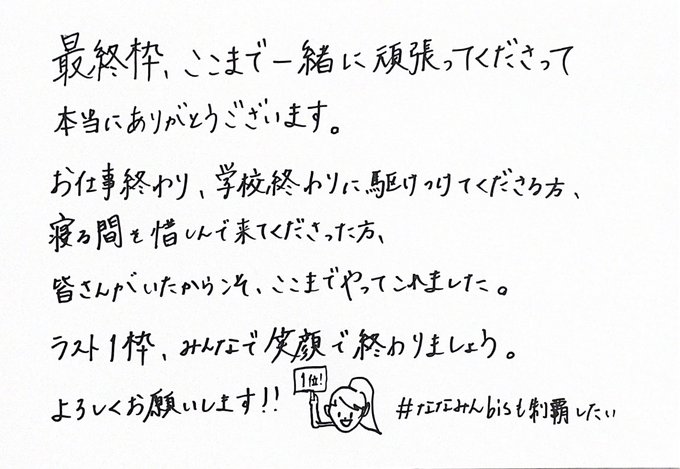 最終枠、ここまで一緒に頑張ってくださって
本当にありがとうございます。
お仕事終わり、学校終わりに駆けつけてくださる方、
寝る間を惜しんで来てくださった方、
皆さんがいたからこそ、ここまでやってこれました。
ラスト1枠、みんなで笑顔で終わりましょう。
よろしくお願いします!!
1位!
#ななみんbisも制覇したい